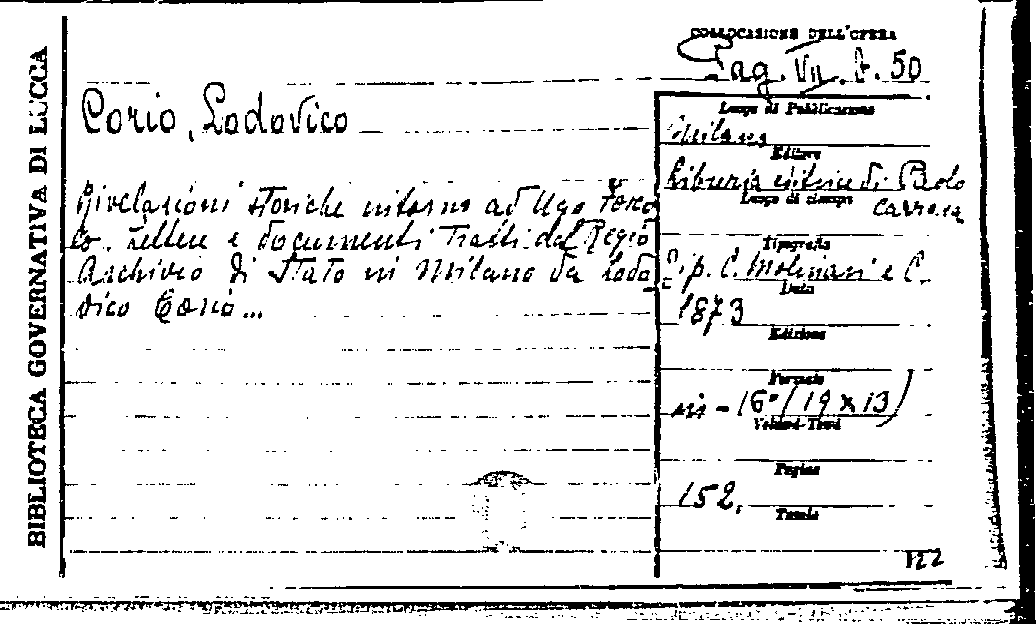 BIBLIOTECA GOVERNATIVA DI LUCCA
COLLOCAZIONE DELL'OPERA
Pag. VII. F. 50
Corio, Lodovico
Rivelazioni storiche intorno ad Ugo Fosco
lo. Lettere e documenti tratti dal Regio
Archivio di Stato in Milano da Lodo
vico Corio...
Luogo di Pubblicazione
Milano
Editore
Libreria editrice di Paolo
Carrara
Luogo di stampa
Tipografia
Tip. C. Molinari e C.
Data
1873
Edizione
Formato
in-16° (19 x 13)
Volumi-Tomi
Pagine
152.
Tavole
122